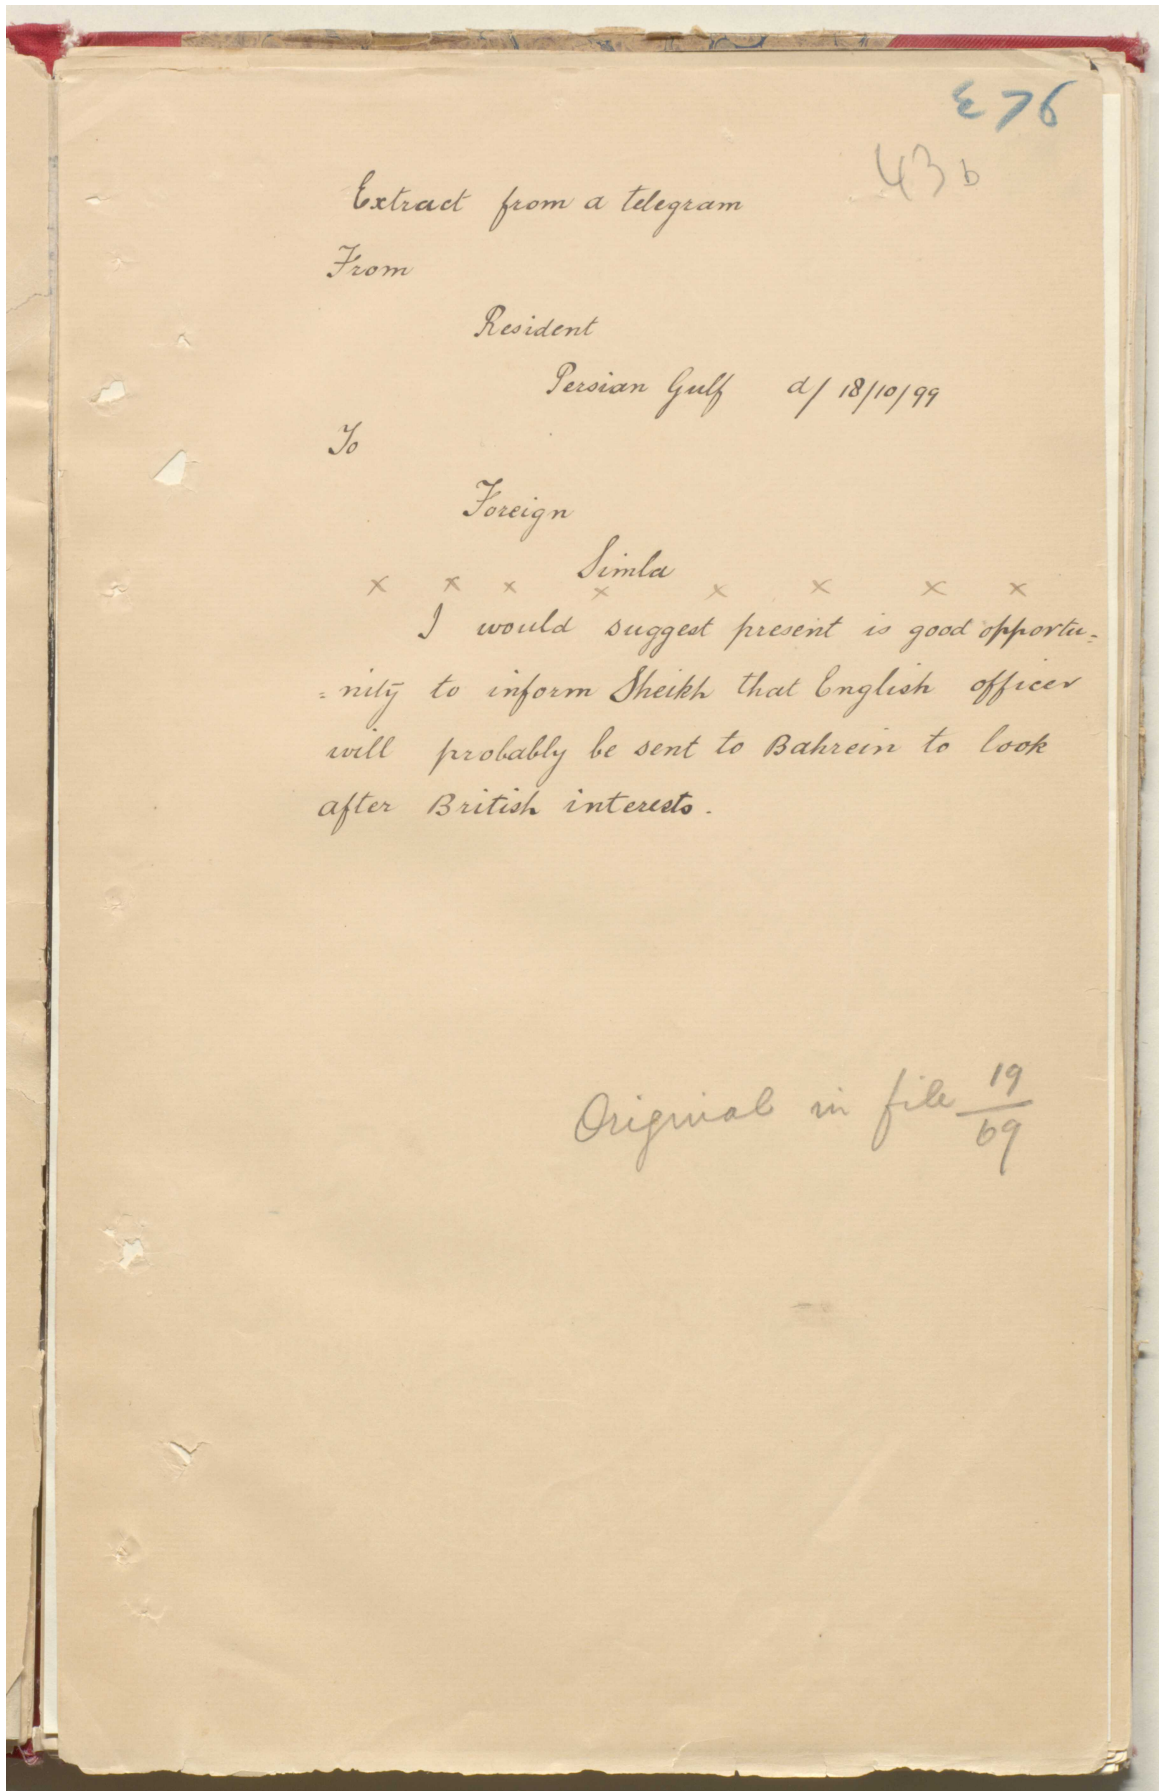 E 76
43 b
Extract from a telegram
From
Resident
Persian Gulf d/ 18/10/99
To
Foreign
Simla
x x x x x x x x
I would suggest present is good opportu=
=nity to inform Sheikh that English officer
will probably be sent to Bahrein to look
after British interests.
Original in file 19/69